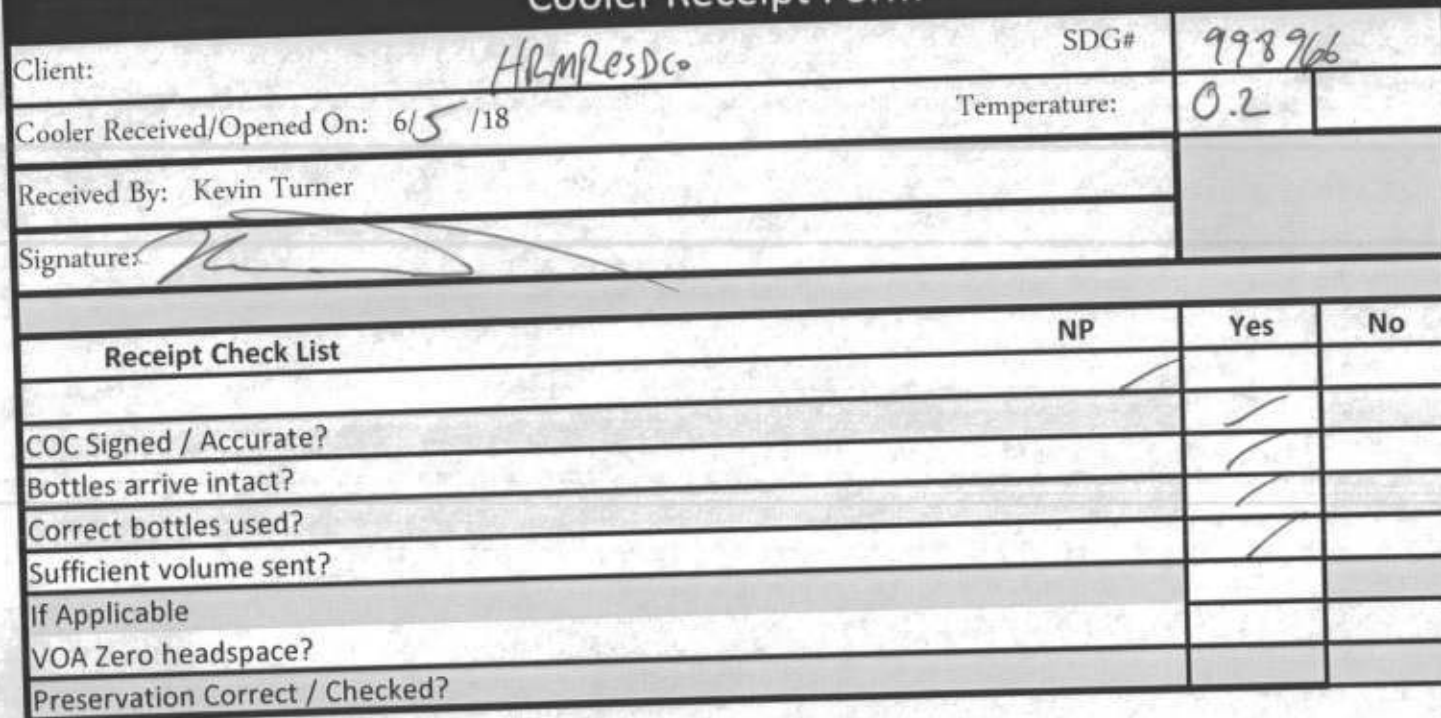 Cooler Receipt Form
Client: HRMResDCo SDG# 998966
Cooler Received/Opened On: 6/5/18 Temperature: 0.2
Received By: Kevin Turner
Signature:
Receipt Check List NP Yes No
COC Signed / Accurate?
Bottles arrive intact?
Correct bottles used?
Sufficient volume sent?
If Applicable
VOA Zero headspace?
Preservation Correct / Checked?